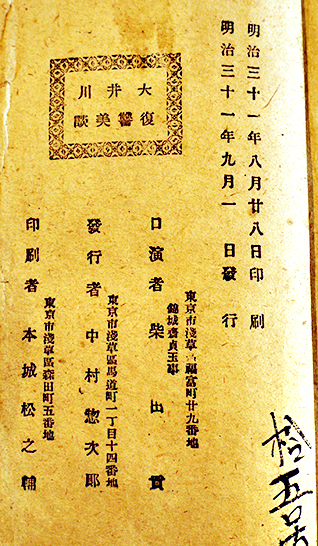 明治三十一年八月廿八日印刷
明治三十一年九月一日發行
大井川
復讐美談
東京市淺草區福富町廿九番地
錦城齋貞玉事
口演者 柴田貢
東京市淺草區馬道町一丁目十四番地
發行者 中村惣次郎
東京市淺草區森田町五番地
印刷者 本城松之輔
拾五